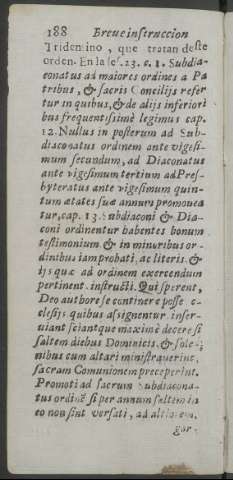 188 Breue instruccion
Tridentino, que tratan deste
orden. En la ses. 23. c. 1. Subdia-
conatus ad maiores ordines a Pa
tribus, & sacris Concilijs refer
tur in quibus, & de alijs inferiori
bus frequentissimè legimus cap.
12. Nullus in posterum ad Sub-
diaconatus ordinem ante vigesi-
mum secundum, ad Diaconatus
ante vigesimum tertium ad Pres-
byteratus ante vigesimum quin-
tum ætatis suæ annum promouea
tur, cap. 13. Subdiaconi & Dia-
coni ordinentur habentes bonum
testimonium & in minoribus or-
dinibus iam probati, ac literis, &
ijs quæ ad ordinem exercendum
pertinent. instructi. Qui sperent,
Deo authore se continere posse e-
clesijs quibus assignentur inser-
uiant sciantque maximè decere si
saltem diebus Dominicis, & sole-
nibus cum altari ministrauerint,
sacram Comunionem preceperint.
Promoti ad sacrum Subdiacona-
tus ordinẽ si per annum saltem in
eo non sint versati, ad altiorem.
gor-